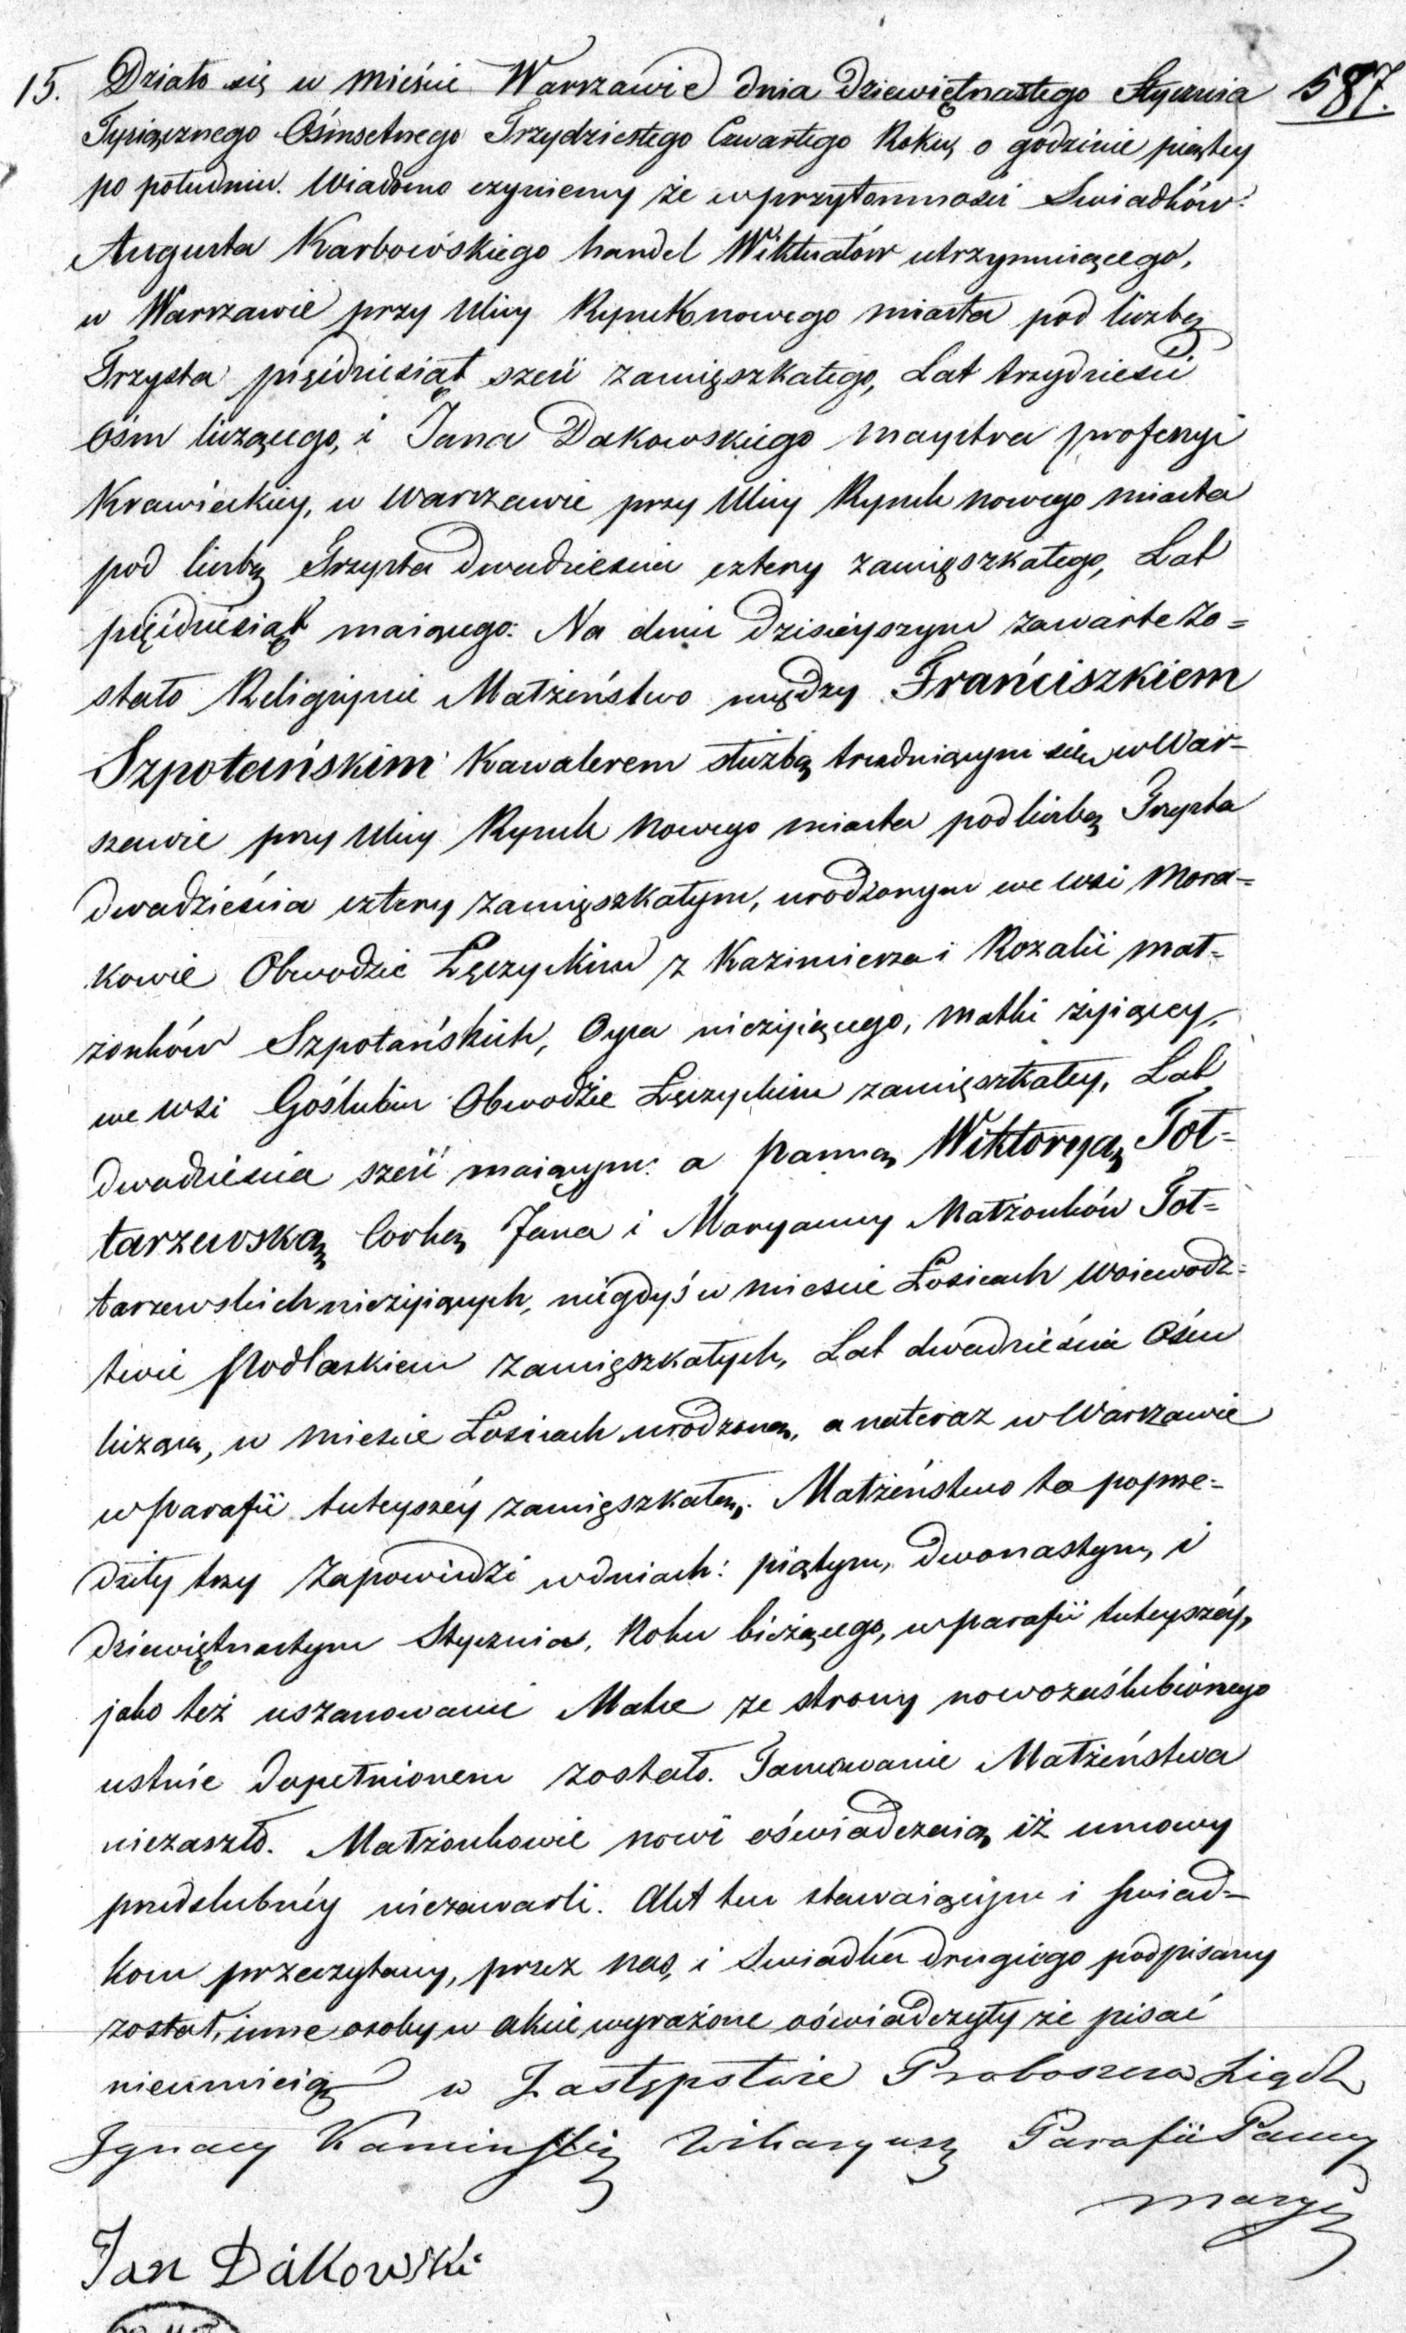 15. Działo się w mieście Warszawie dnia dziewiętnastego Stycznia 587.
Tysiącznego Ośmsetnego Trzydziestego Czwartego Roku, o godzinie piątey
po południu. Wiadomo czyniemy że w przytomności Swiadków:
Augusta Karbowskiego handel Wiktuałów utrzymuiącego,
w Warszawie przy Ulicy Rynek nowego miasta pod liczbą
Trzysta pięćdziesiąt sześć zamięszkałego, Lat trzydzieści
Ośm liczącego, i Jana Dakowskiego maystra profesyi
Krawieckiey, w Warszawie przy Ulicy Rynek nowego miasta
pod liczbą Trzysta dwadzieścia cztery zamięszkałego, Lat
pięćdziesiąt maiącego: Na dniu dzisieyszym zawarte zo=
stało Religijnie Małżeństwo między Franciszkiem
Szpotańskim Kawalerem służbą trudniącym się w War=
szawie przy Ulicy Rynek Nowego miasta pod liczbą Trzysta
dwadzieścia cztery zamięszkałym, urodzonym we wsi Mora=
kowie Obwodzie Łęczyckim z Kazimierza i Rozalii mał=
żonków Szpotańskich, Oyca nieżyiącego, matki żyiącey,
we wsi Goślubiu Obwodzie Łęczyckim zamięszkałey, Lat
dwadzieścia sześć maiącym: a panną Wiktoryą Toł=
tarzewską Corką Jana i Maryanny Małżonków Toł=
tarzewskich nieżyiących, niegdyś w mieście Łosicach Woiewodz=
twie Podlaskiem zamięszkałych, Lat dwadzieścia Ośm
liczącą, w mieście Łosicach urodzoną, a nateraz w Warszawie
w Parafii tuteyszéy zamięszkałą. Małżeństwo to poprze=
dziły trzy zapowiedzi w dniach: piątym, dwonastym, i
dziewiętnastym Stycznia, Roku bieżącego, w parafii tuteyszéy,
jako też uszanowanie Matce ze strony nowozaślubionego
ustnie dopełnionem zostało. Tamowanie Małżeństwa
niezaszło. Małżonkowie nowi oświadczaią iż umowy
przedslubnéy niezawarli. Akt ten stawaiącym i swiad=
kom przeczytany, przez nas, i Swiadka drugiego podpisany
został, inne osoby w akcie wyrażone oświadczyły że pisać
nieumieią w Zastępstwie Proboszcza
Ignacy Kaminski Wikaryusz Parafii Panny
Maryi
Jan Dakowski